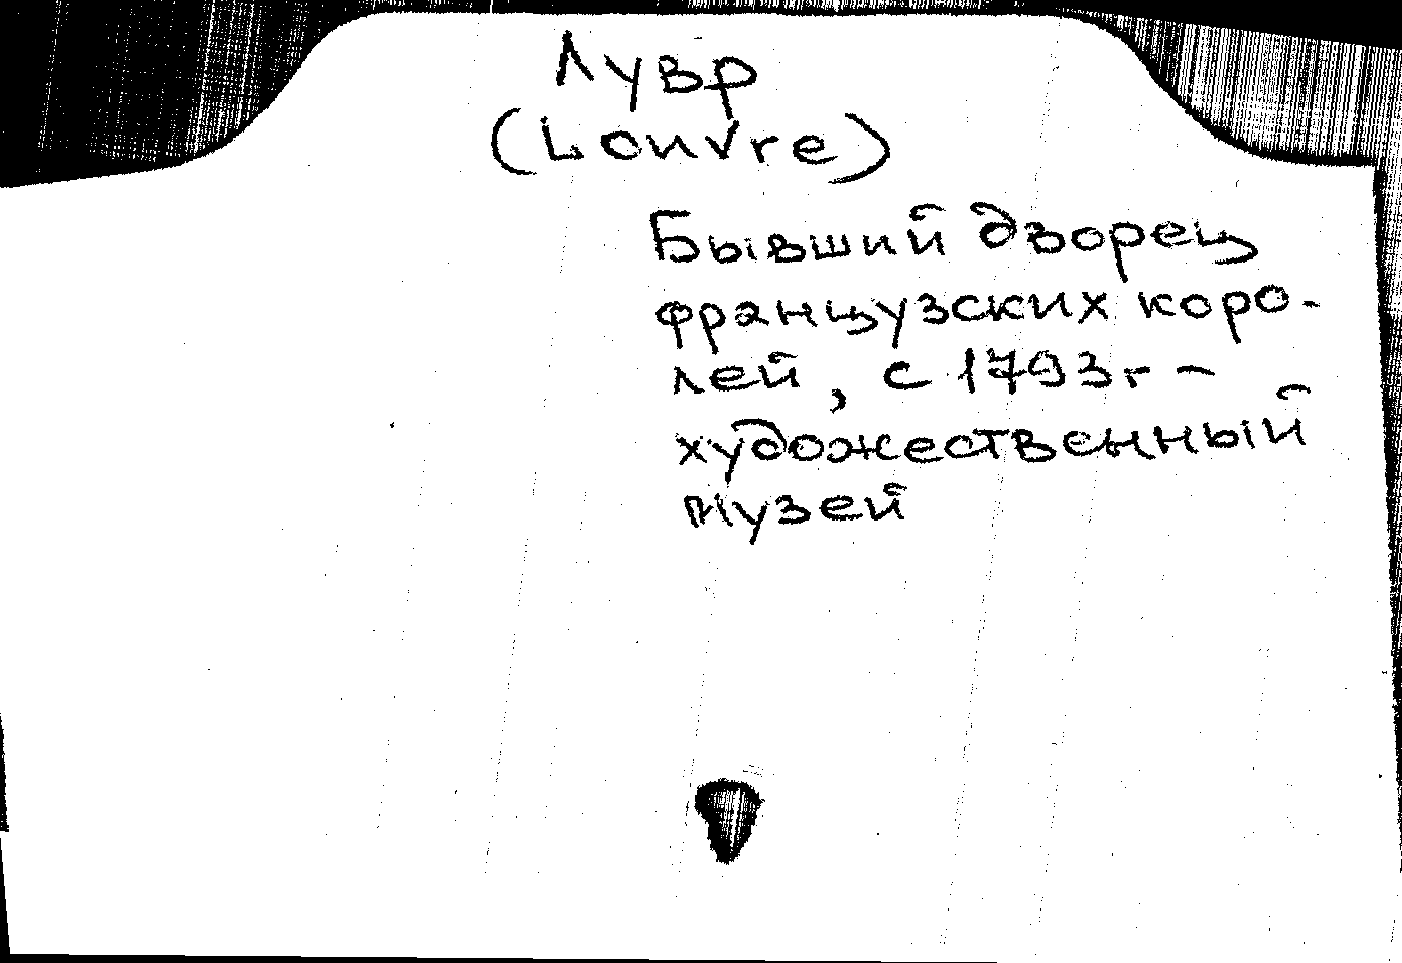 Лувр
(Louvre)
Бывший дворец
французских коро-
лей, с 1793г. -
художественный
музей